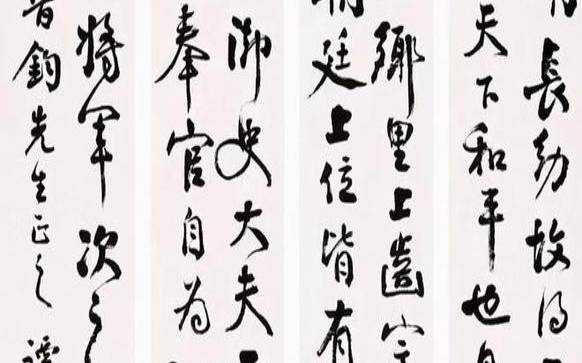 長幼故得
天下和平也
鄉里上齒宗
廷上位皆有
御史大夫
奉官自為
將軍次之
鈞先生正之